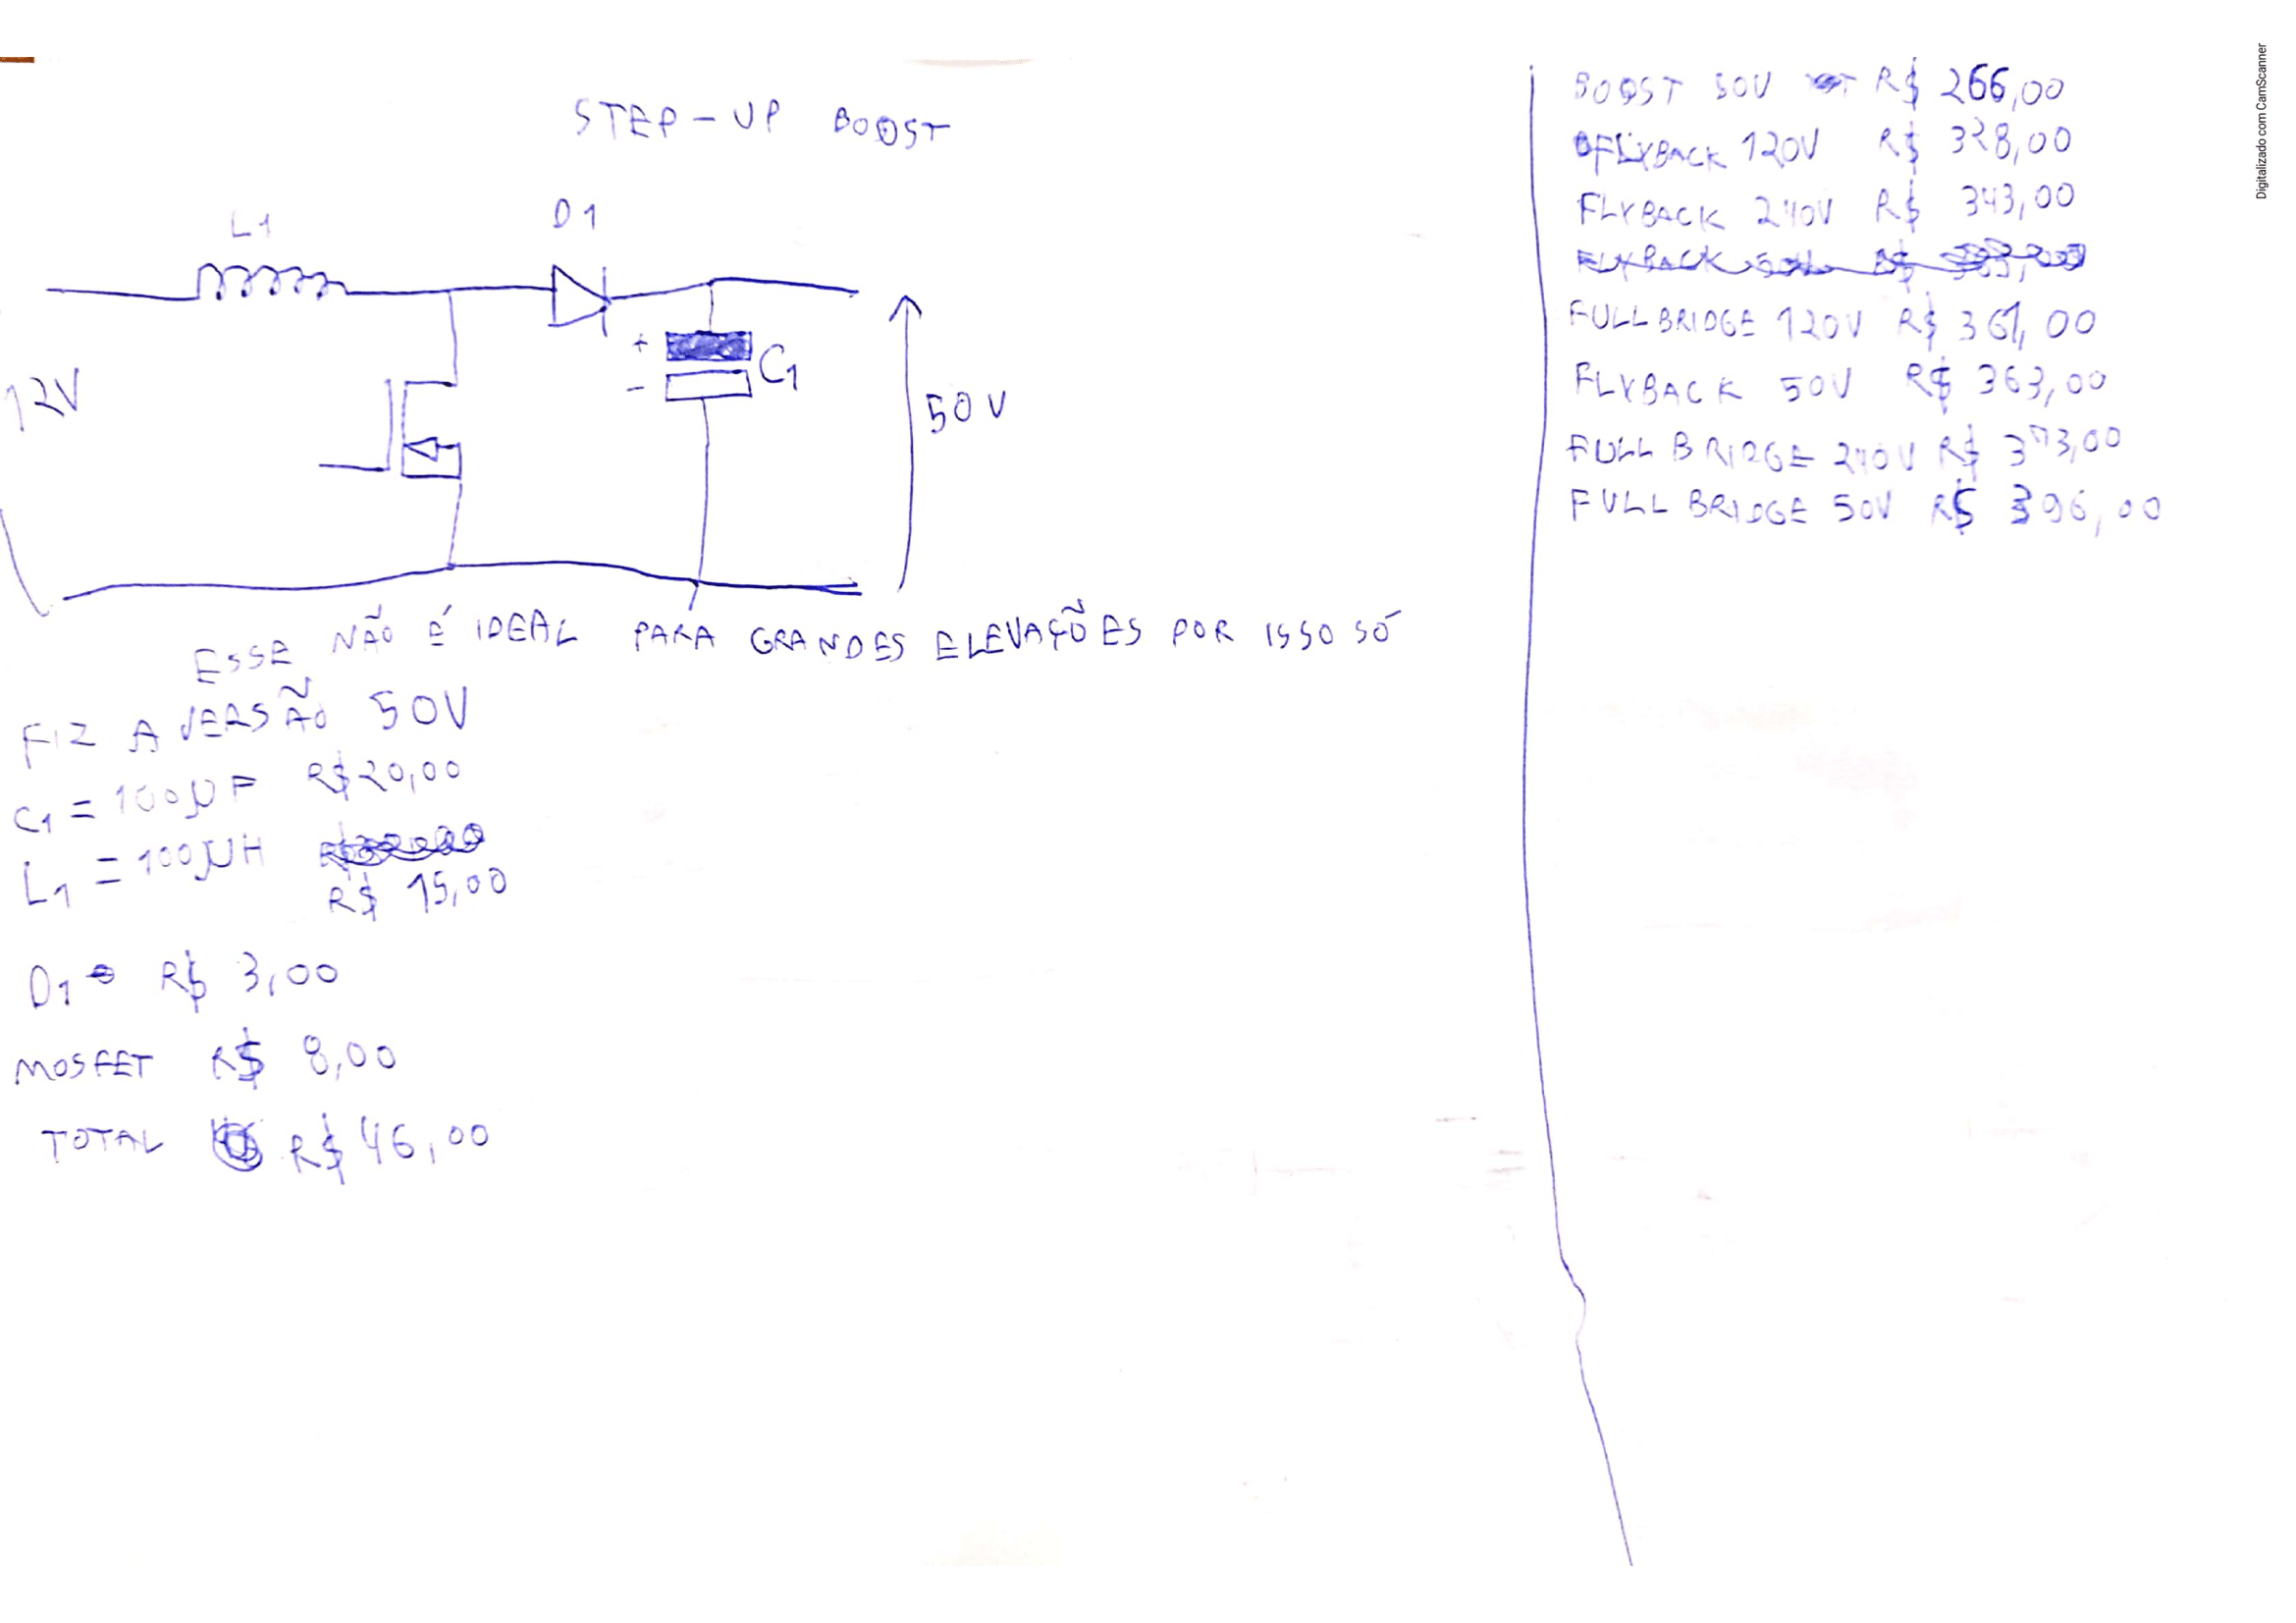 STEP-UP BOOST
L1
D1
12V
+
-
C1
50V
ESSE NÃO É IDEAL PARA GRANDES ELEVAÇÕES POR ISSO SÓ
FIZ A VERSÃO 50V
C1 = 100µF R$20,00
L1 = 100µH
R$ 15,00
D1 R$ 3,00
MOSFET R$ 8,00
TOTAL R$ 46,00
BOOST 50V R$ 266,00
FLYBACK 120V R$ 328,00
FLYBACK 240V R$ 343,00
FULL BRIDGE 120V R$ 361,00
FLYBACK 50V R$ 363,00
FULL BRIDGE 240V R$ 373,00
FULL BRIDGE 50V R$ 396,00
Digitalizado com CamScanner